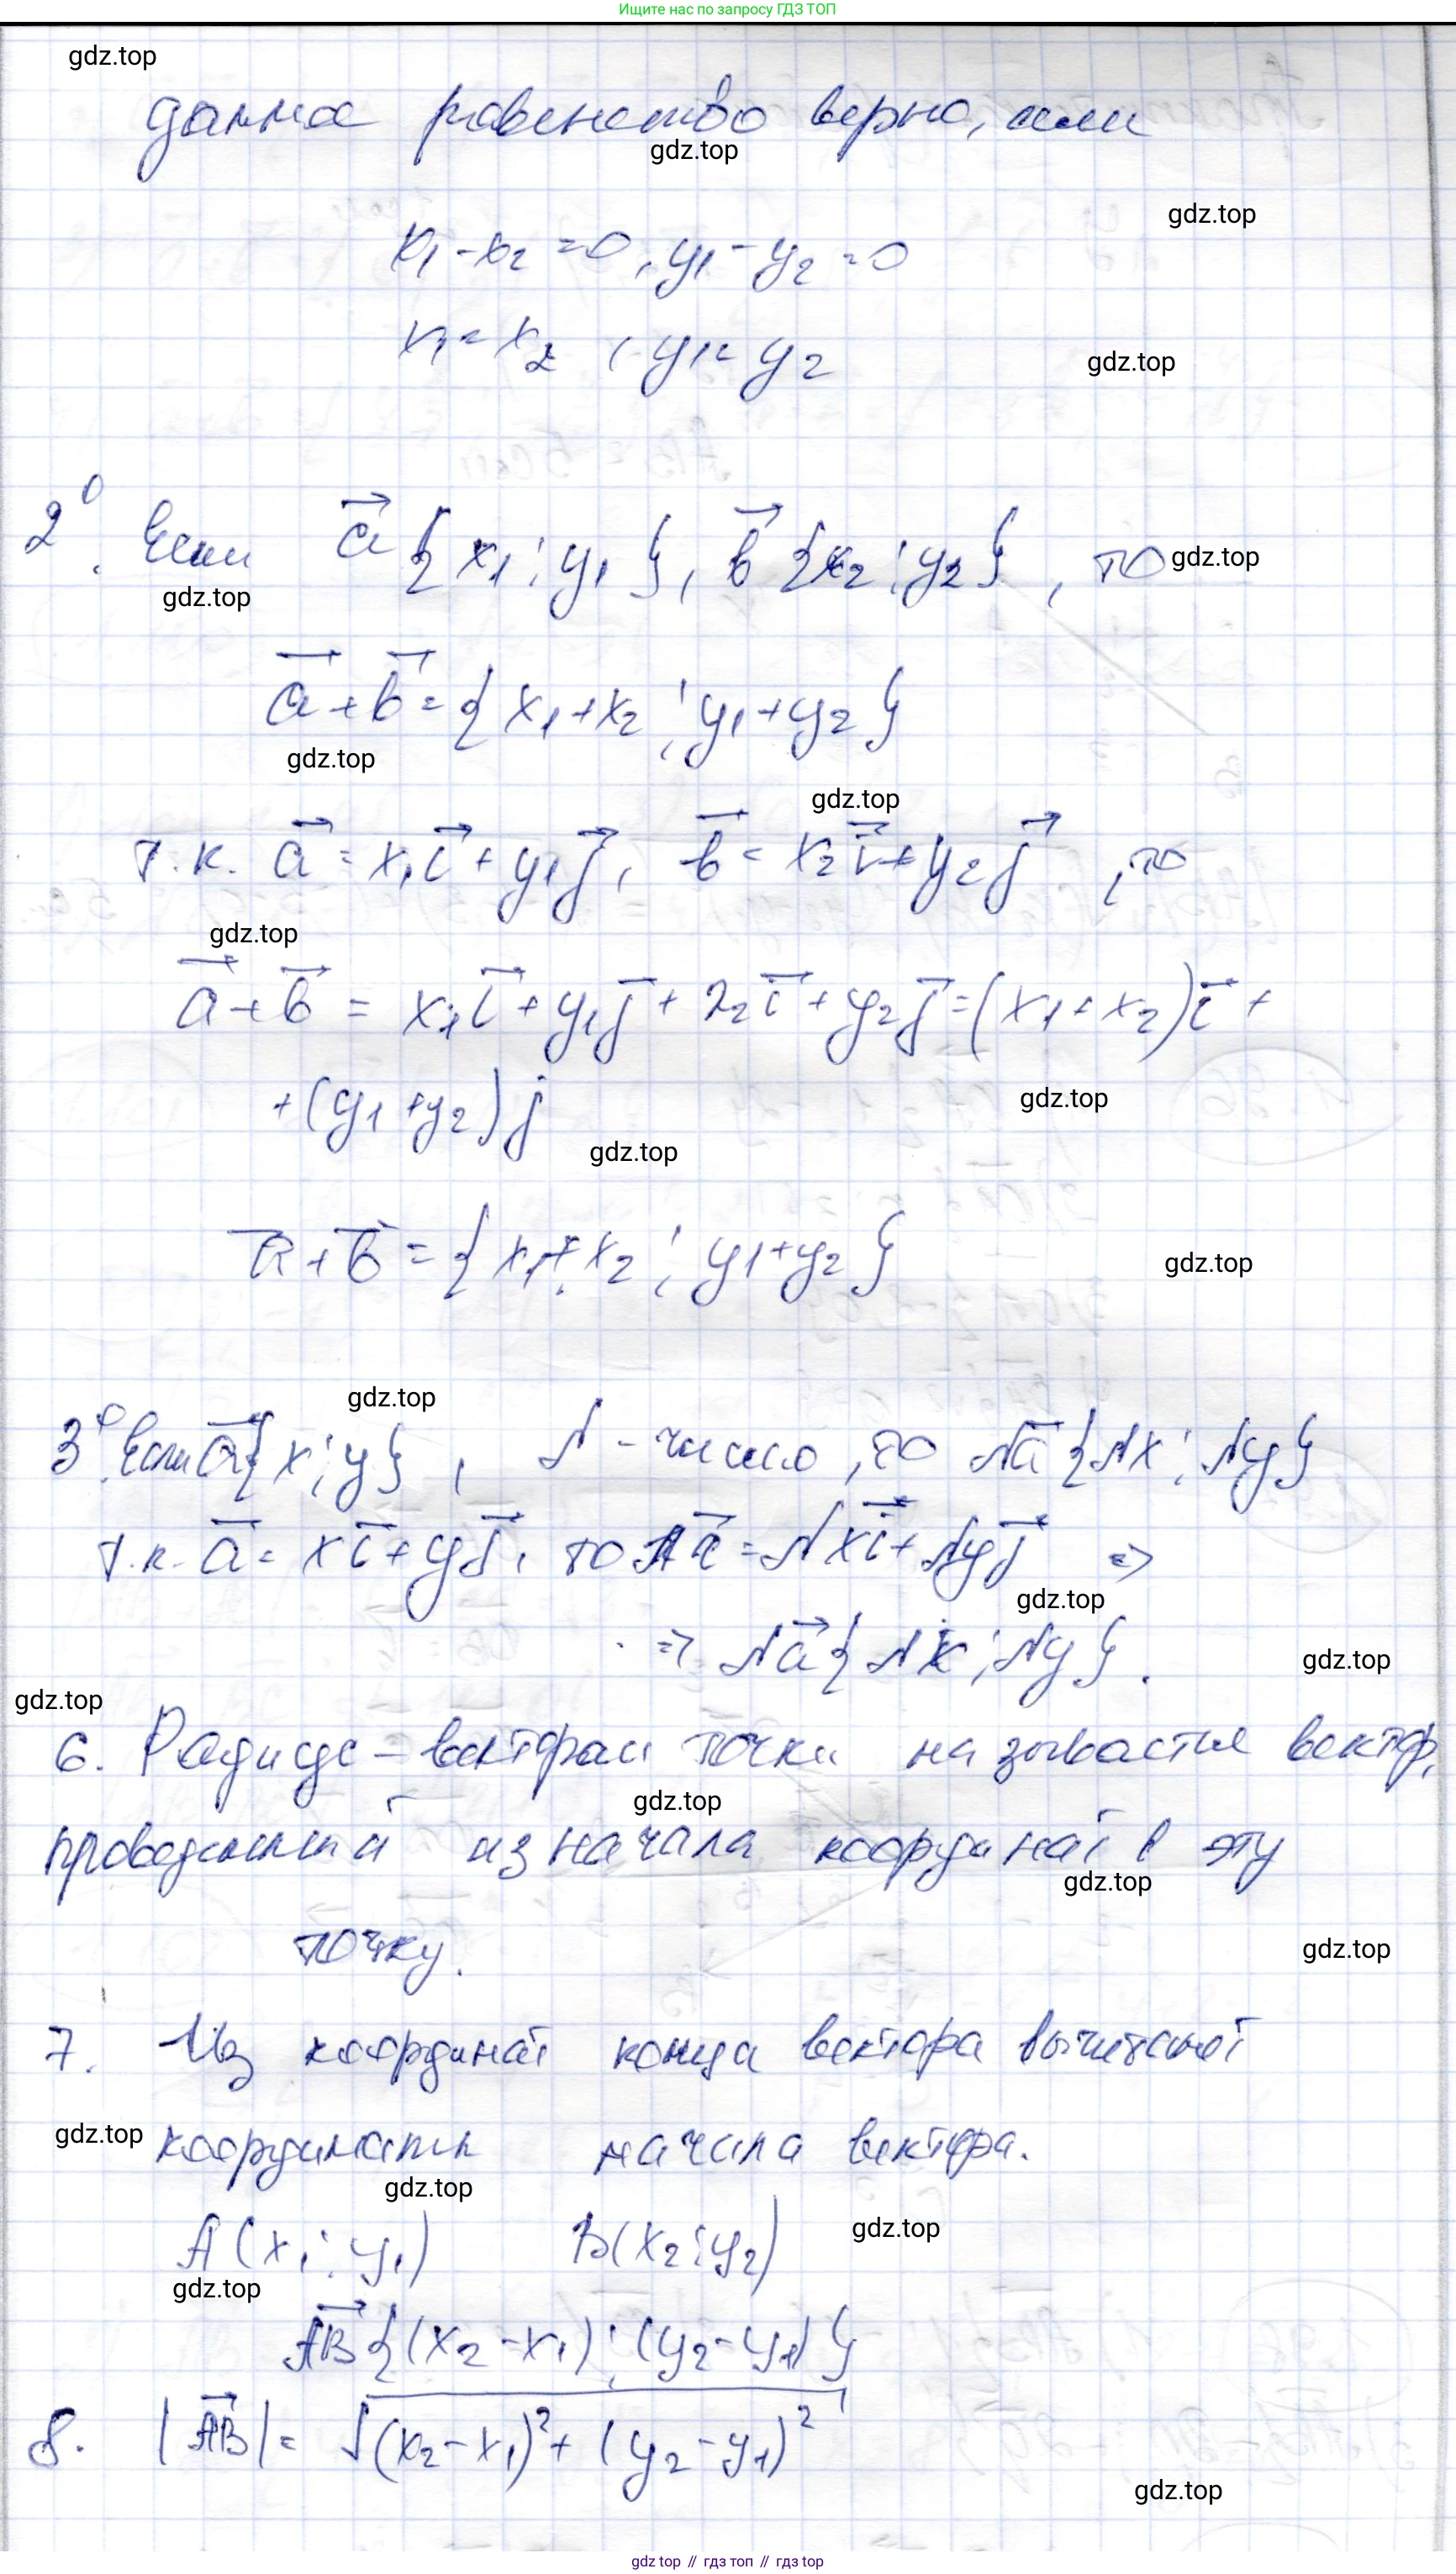 Ищите нас по запросу ГДЗ ТОП
gdz.top
данное равенство верно, если
gdz.top
gdz.top
x₁ - x₂ = 0, y₁ - y₂ = 0
x₁ = x₂, y₁ = y₂
gdz.top
2⁰. Если a⃗ {x₁; y₁}, b⃗ {x₂; y₂}, то
gdz.top
gdz.top
a⃗ + b⃗ = {x₁ + x₂; y₁ + y₂}
gdz.top
gdz.top
т.к. a⃗ = x₁i⃗ + y₁j⃗, b⃗ = x₂i⃗ + y₂j⃗, то
gdz.top
a⃗ + b⃗ = x₁i⃗ + y₁j⃗ + x₂i⃗ + y₂j⃗ = (x₁ + x₂)i⃗ +
+ (y₁ + y₂)j
gdz.top
gdz.top
a⃗ + b⃗ = {x₁ + x₂; y₁ + y₂}
gdz.top
gdz.top
3⁰. Если a⃗ {x; y}, λ - число, то λa⃗ {λx; λy}
т.к. a⃗ = xi⃗ + yj⃗, то λa⃗ = λxi⃗ + λyj⃗ =>
gdz.top
=> λa⃗ {λx; λy}.
gdz.top
gdz.top
6. Радиус-вектором точки называется вектор,
gdz.top
проведенный из начала координат в эту
gdz.top
точку.
gdz.top
7. Из координат конца вектора вычитают
gdz.top
координаты начала вектора.
gdz.top
A(x₁; y₁) B(x₂; y₂)
gdz.top
gdz.top
AB⃗ {(x₂ - x₁); (y₂ - y₁)}
8. |AB⃗| = √((x₂ - x₁)² + (y₂ - y₁)²)
gdz.top
gdz top // гдз топ // gdz.top